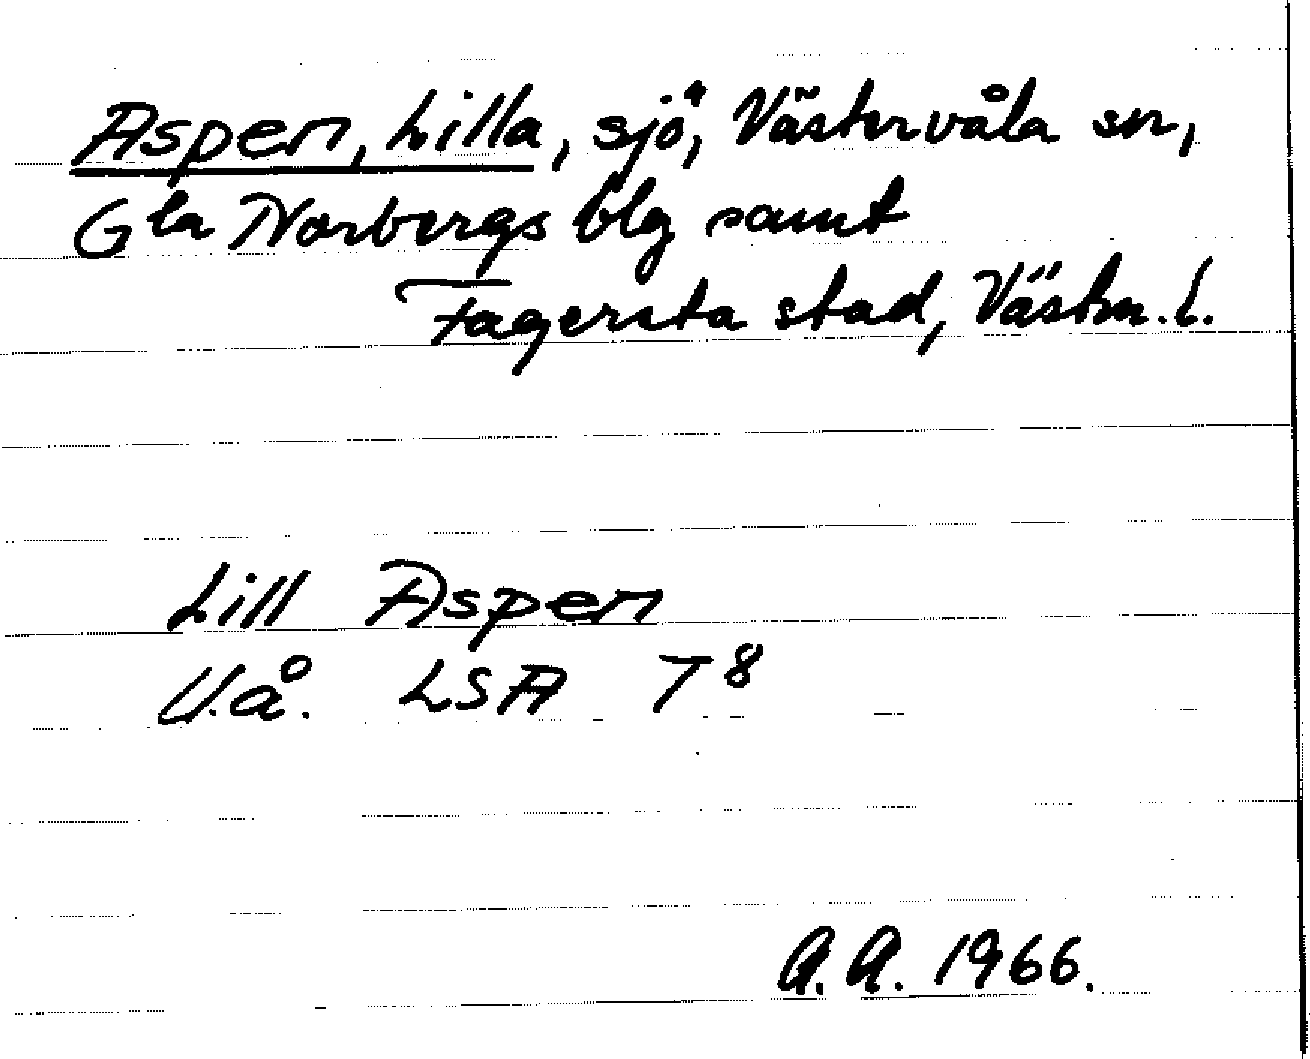 Aspen, Lilla, sjö, Västervåla sn,
Gla Norbergs blg samt
Fagersta stad, Västm. l.
Lill Aspen
U.å. LSA T 8
A.A. 1966.